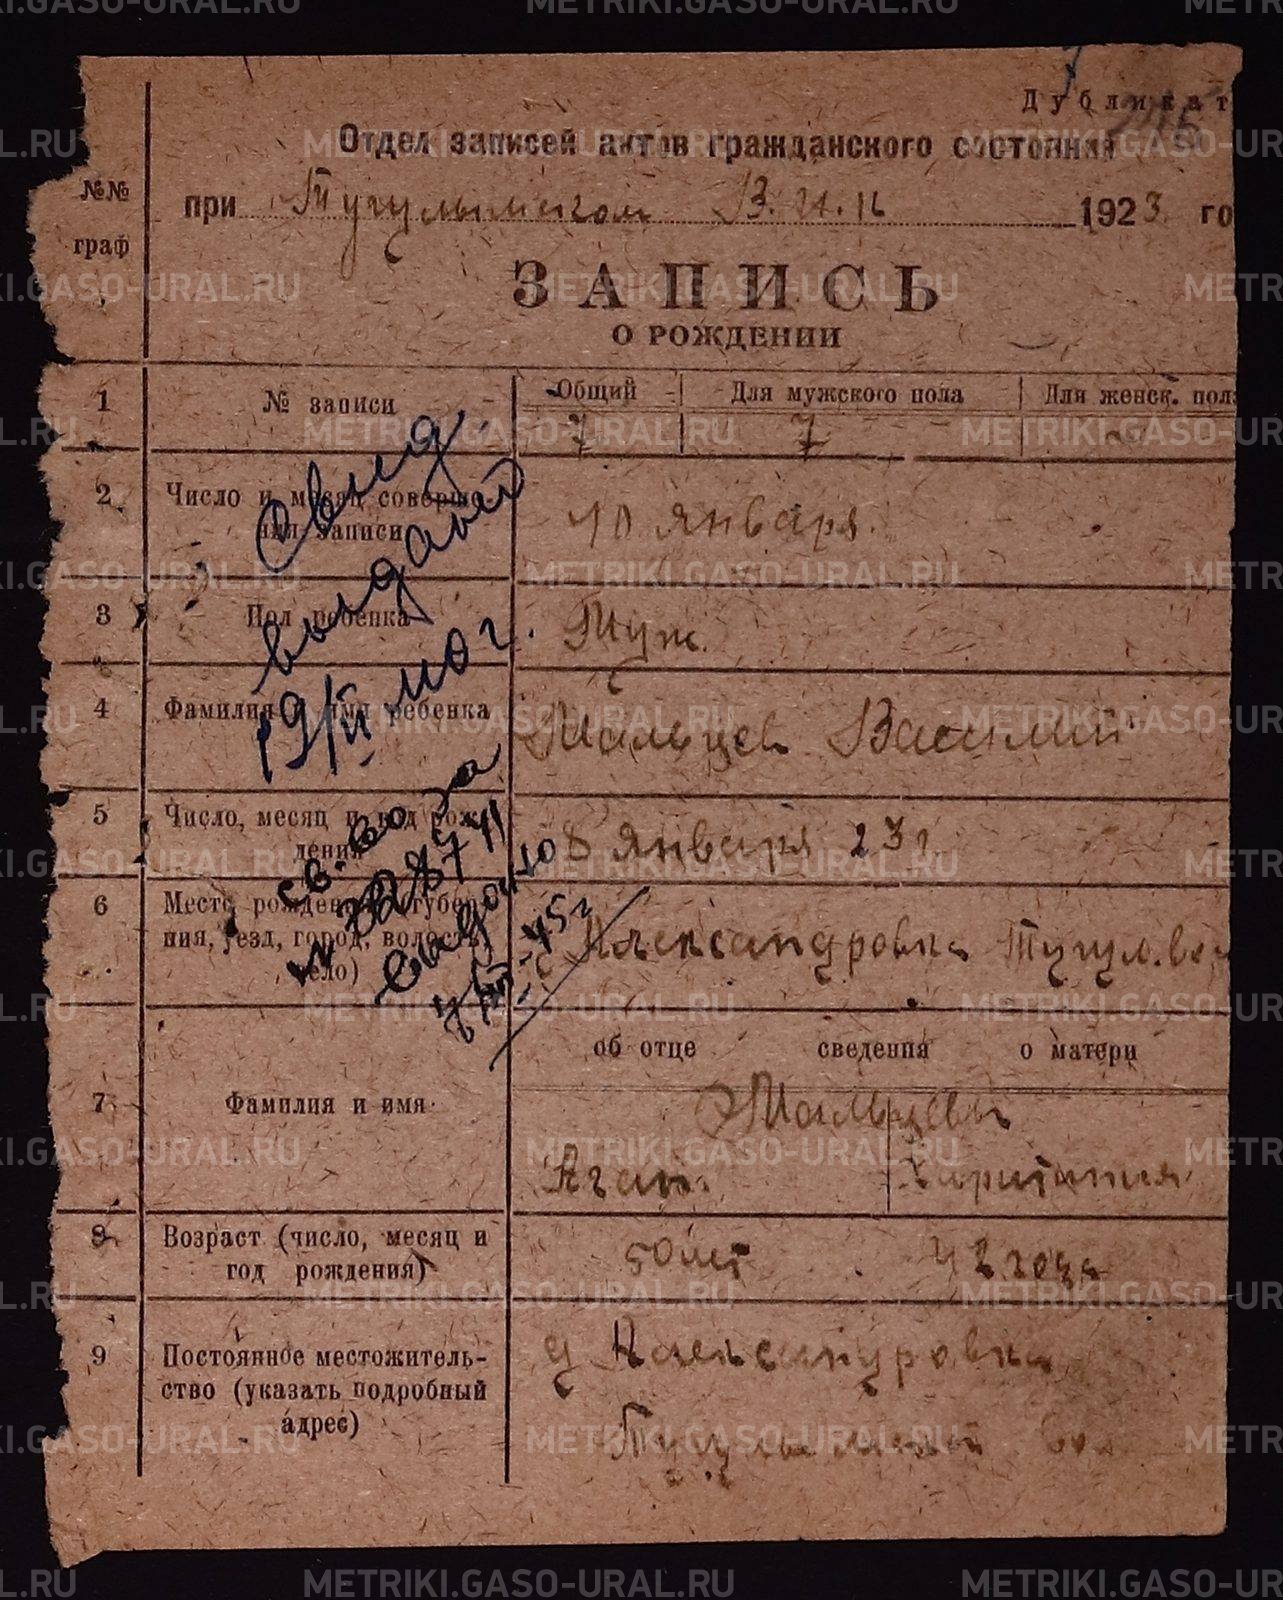 Дубликат
Отдел записей актов гражданского состояния
при Тугулымском В.И.К 1923 го
№№ граф
ЗАПИСЬ
О РОЖДЕНИИ
1 № записи Общий Для мужского пола Для женск. пола
7 7
2 Число и месяц соверше-
ния записи 10 января.
3 Пол ребенка Муж.
4 Фамилия и имя ребенка Мальцев Василий
5 Число, месяц и год рож-
дения 8 января 23 г
6 Место рождения (губер-
ния, уезд, город, волость,
село) Александровка Тугул. во
об отце сведения о матери
7 Фамилия и имя Мальцевы
Агап. Харитиния
8 Возраст (число, месяц и
год рождения) 50 лет 42 года
9 Постоянное местожитель-
ство (указать подробный
адрес) д Александровка
Тугулымской вол
Свид.
выдано
19/II 40 г.
св-во за
выдано
METRIKI.GASO-URAL.RU